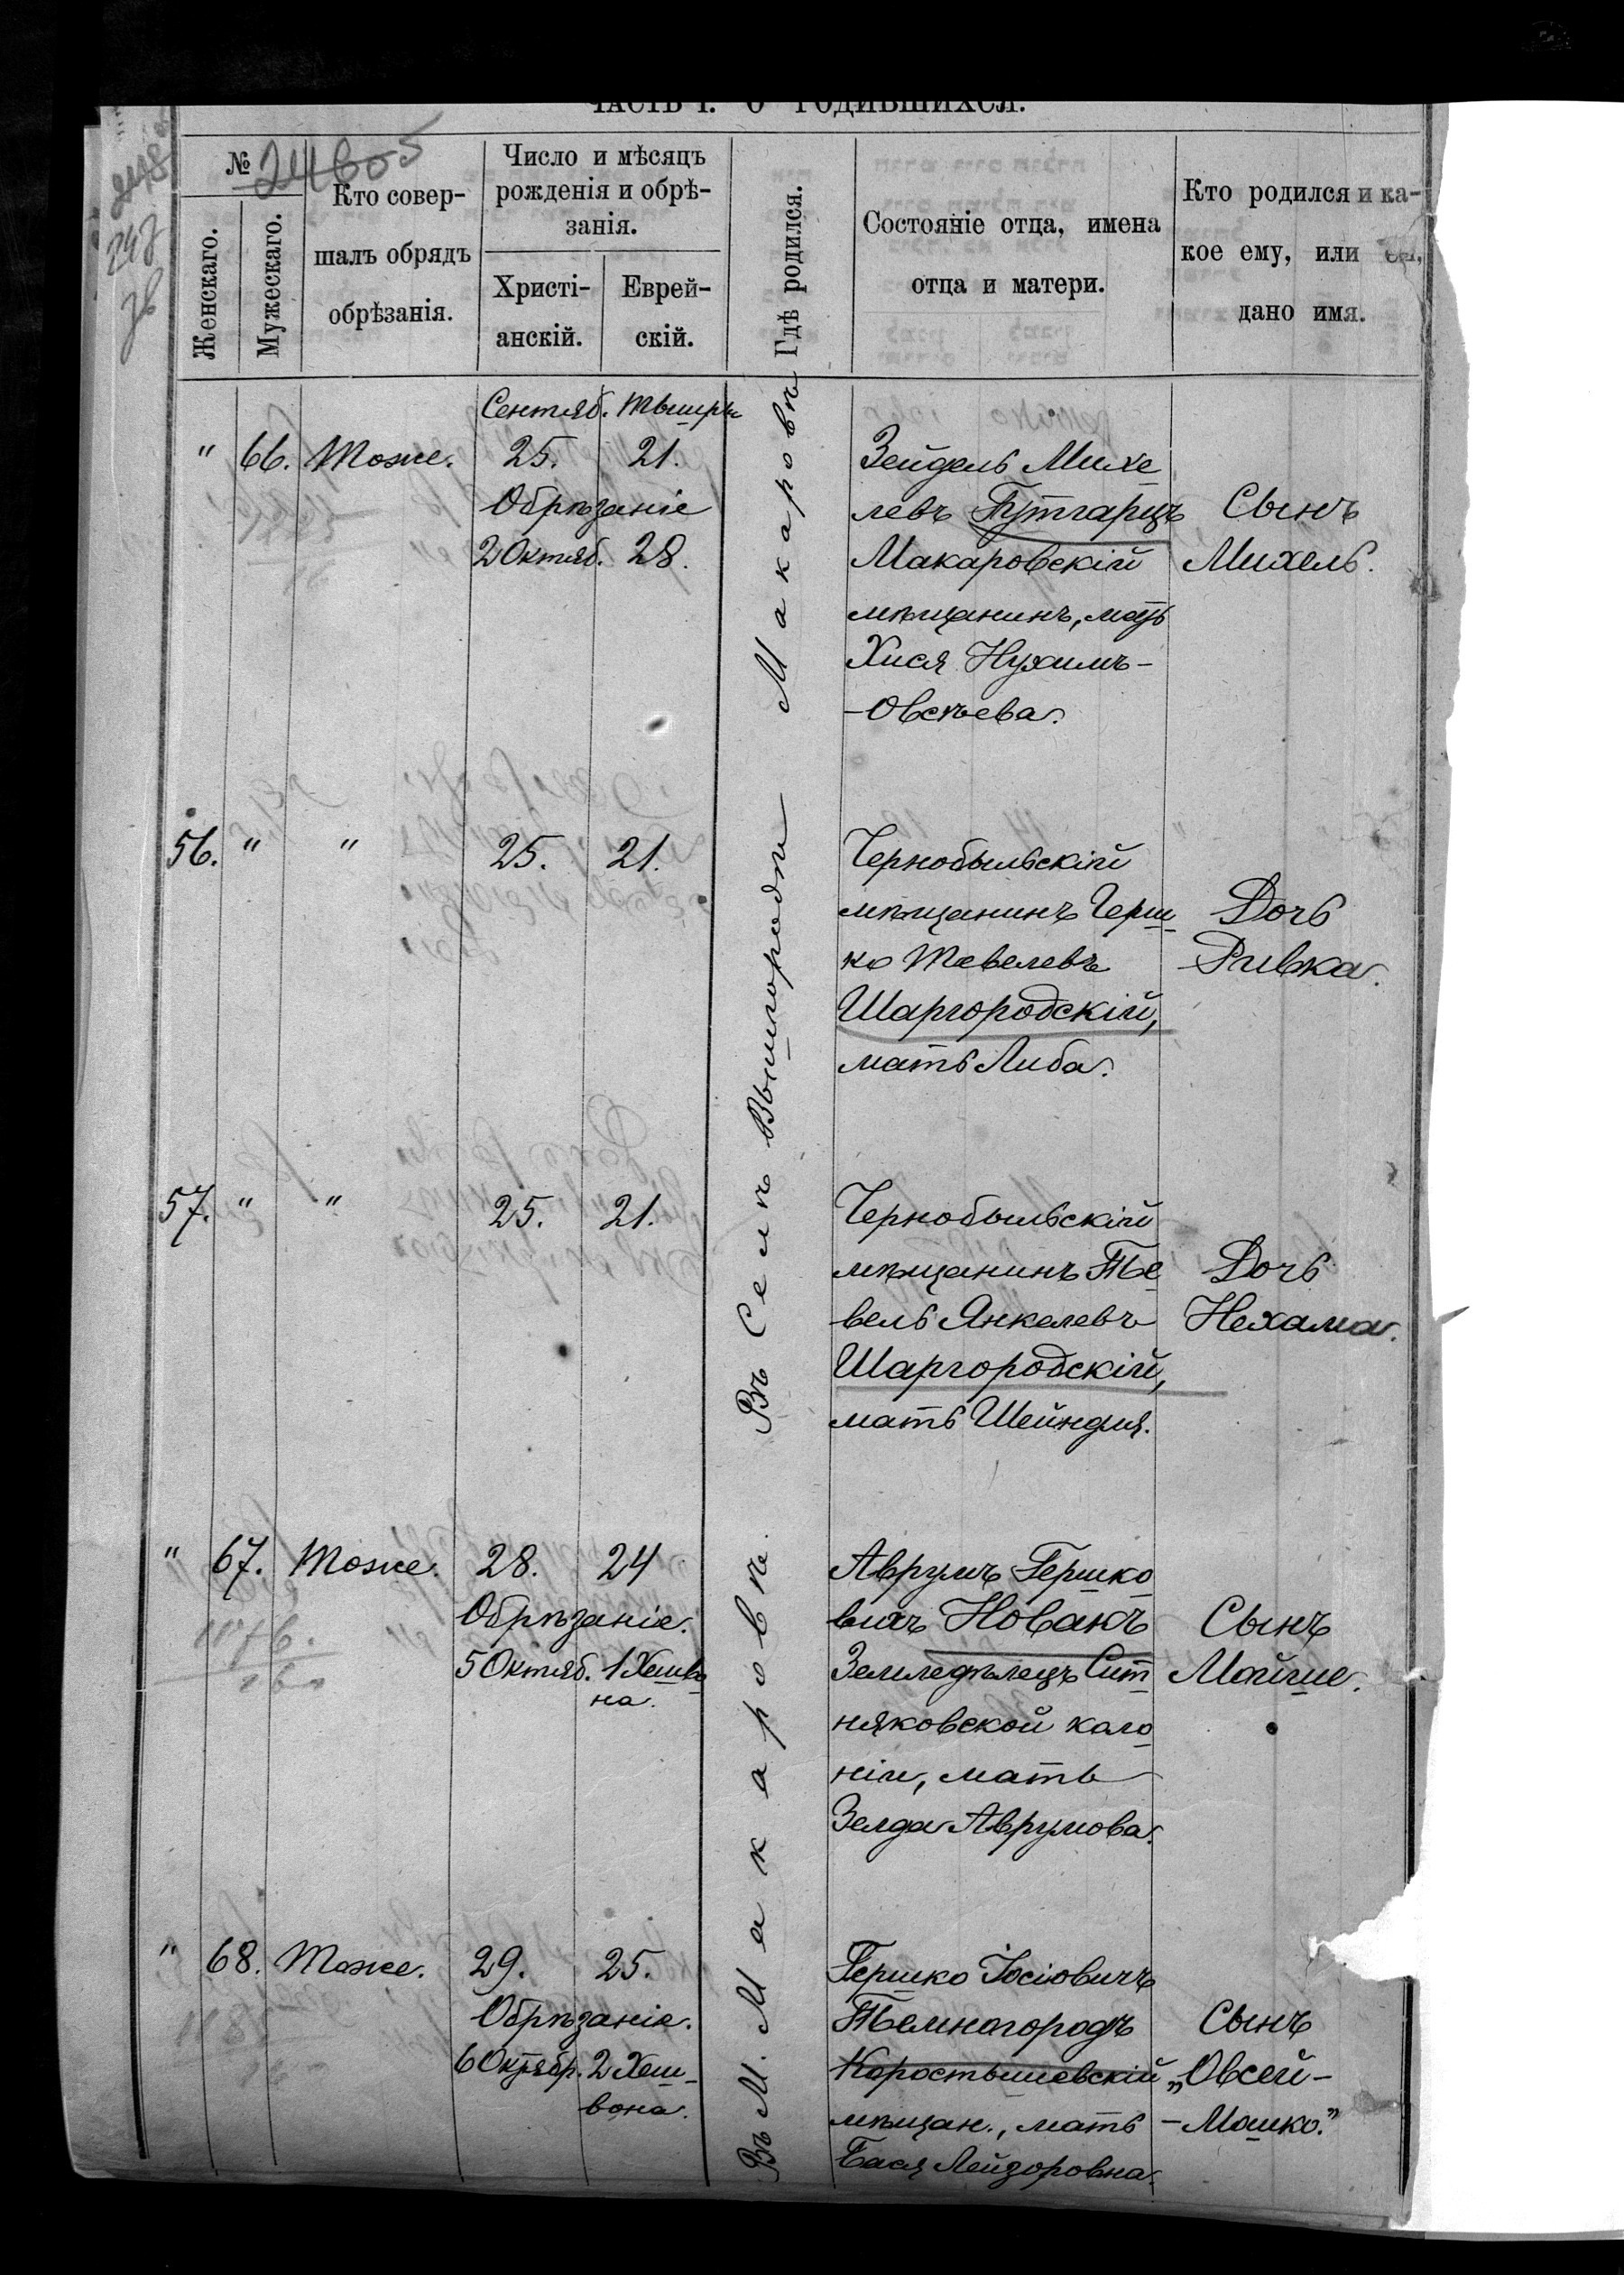 ЧАСТЬ I. О РОДИВШИХСЯ.
№
Женскаго.
Мужескаго.
Кто совер-
шалъ обрядъ
обрѣзанія.
Число и мѣсяцъ
рожденія и обрѣ-
занія.
Христі-
анскій.
Еврей-
скій.
Гдѣ родился.
Состояніе отца, имена
отца и матери.
Кто родился и ка-
кое ему, или ей,
дано имя.
Сентяб. Тышри
" 66. Тоже. 25. 21.
Обрѣзаніе
2 Октяб. 28.
Макаровѣ
Зейдель Михе
левъ
Макаровскій
мѣщанинъ, мать
Хися Нухимъ-
-Овсѣева.
Сынъ
Михель.
56. " " 25. 21.
Въ Селѣ Вышгородѣ
Чернобыльскій
мѣщанинъ Герш
ко Тевелевъ
Шаргородскій,
мать Либа.
Дочь
Ривка.
57. " " 25. 21.
Чернобыльскій
мѣщанинъ Те
вель Янкелевъ
Шаргородскій,
мать Шейндля.
Дочь
Нехама.
" 67. Тоже. 28. 24
Обрѣзаніе.
5 Октяб. 1 Хешво
на.
Въ М. Макаровѣ.
Аврумъ Гершко
вичъ Новакъ
Земледѣлецъ Сит
няковской коло
ніи, мать
Зелда Аврумова.
Сынъ
Мойше.
" 68. Тоже. 29. 25.
Обрѣзаніе.
6 Октябр. 2 Хеш-
вона.
Гершко Іосіовичъ
Темногородъ
Коростышевскій
мѣщан., мать
Бася Лейзоровна.
Сынъ
„Овсей-
-Мошко."